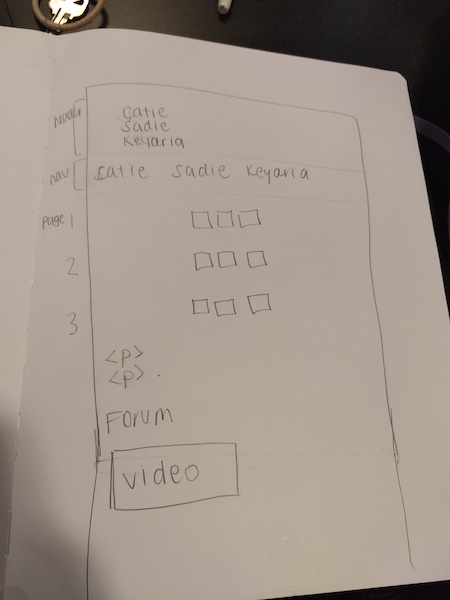 header
Catie
Sadie
Keyaria
nav Catie Sadie Keyaria
page 1
2
3
<p>
<p> .
Forum
video